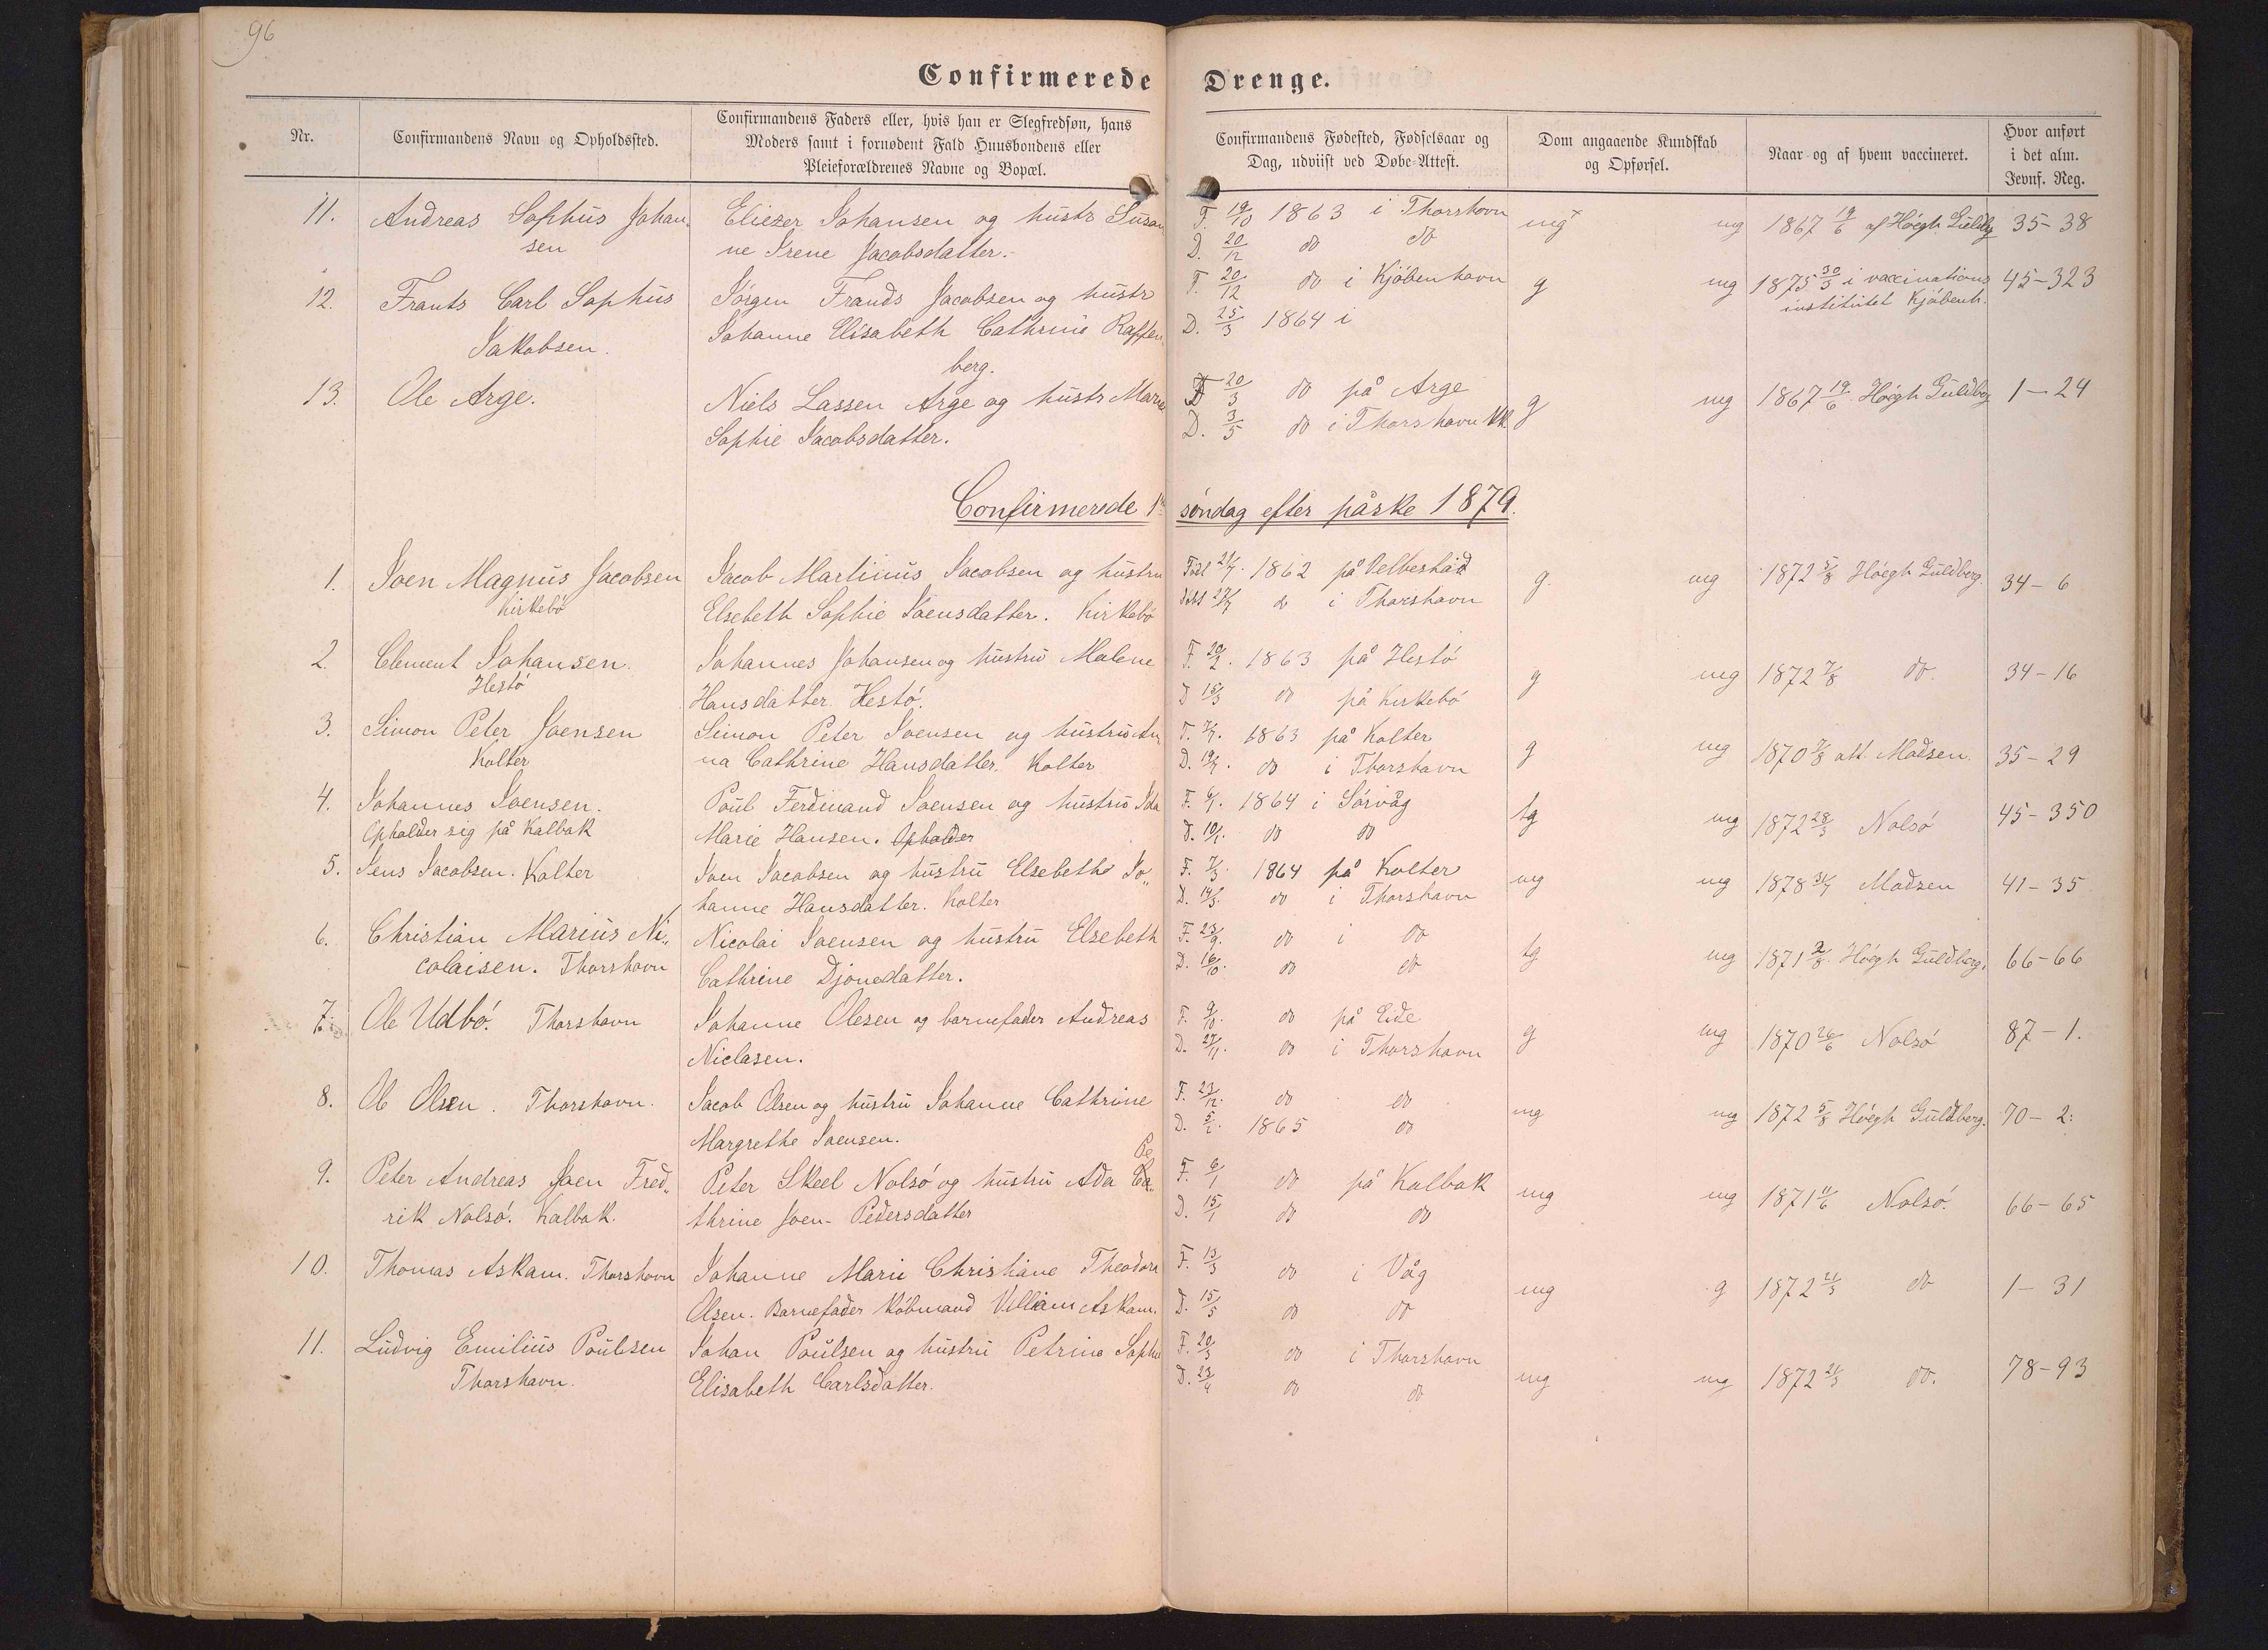 96
Confirmerede Drenge.
Nr.
Confirmandens Navn og Opholdssted.
Confirmandens Faders eller, hvis han er Slegfredsøn, hans
Moders samt i fornødent Fald Huusbondens eller
Pleieforældrenes Navne og Bopæl.
Confirmandens Fødested, Fødselsaar og
Dag, udviist ved Døbe-Attest.
Dom angaaende Kundskab
og Opførsel.
Naar og af hvem vaccineret.
Hvor anført
i det alm.
Jevnf. Reg.
11. Andreas Sophus Johan- Eliezer Johansen og hustr Susan F. 19/10 1863 i Thorshavn mg+ mg 1867 19/6 af Höegh Guldbg 35-38
sen ne Irene Jacobsdatter. D. 20/12 do do
12. Frants Carl Sophus Jörgen Frands Jacobsen og hustr F. 20/12 do i Kjöbenhavn g mg 1875 30/3 i vaccinations 45-323
Jakobsen. Johanne Elisabeth Cathrine Raffen D. 25/3 1864 i institutet Kjöbenh.
berg.
13. Ole Arge. Niels Lassen Arge og hustr Maria F 20/3 do på Arge g mg 1867 19/6 Höegh Guldbg 1-24
Sophie Jacobsdatter. D. 3/5 do i Thorshavn kk
Confirmerede 1ste söndag efter påske 1879.
1. Joen Magnus Jacobsen Jacob Martinus Jacobsen og hustru Född 21/7. 1862 på Velbestad g. mg 1872 5/8 Höegh Guldberg. 34-6
Kirkebö Elsebeth Sophie Joensdatter. Kirkebö Döbt 27/7 do i Thorshavn
2. Clement Johansen. Johannes Johansen og hustru Malene F. 20/2. 1863 på Hestö g mg 1872 7/8 do. 34-16
Hestö Hansdatter. Hestö. D 15/3 do på Kirkebö
3. Simon Peter Joensen Simon Peter Joensen og hustru An F. 7/7. 1863 på Kolter g mg 1870 7/8 att. Madsen. 35-29
Kolter na Cathrine Hansdatter. Kolter D. 19/7. do i Thorshavn
4. Johannes Joensen. Poul Ferdinand Joensen og hustru Ida F. 6/1. 1864 i Sörvåg tg mg 1872 28/3 Nolsö 45-350
Opholder sig på Kalbak Marie Hansen. Opholder D. 10/1. do do
5. Jens Jacobsen. Kolter Joen Jacobsen og hustru Elsebeth Jo„ F. 7/3. 1864 på Kolter mg mg 1878 31/7 Madsen 41-35
hanne Hansdatter. Kolter D. 14/3. do i Thorshavn
6. Christian Marius Ni„ Nicolai Joensen og hustru Elsebeth F. 23/9. do i do tg mg 1871 2/8. Höegh Guldberg. 66-66
colaisen. Thorshavn Cathrine Djonedatter. D. 16/10. do do
7. Ole Udbö. Thorshavn Johanne Olesen og barnefader Andreas F. 9/10. do på Eide g mg 1870 26/6 Nolsö 87-1.
Niclasen. D. 27/11. do i Thorshavn
8. Ole Olsen. Thorshavn. Jacob Olsen og hustru Johanne Cathrine F. 23/12. do do mg mg 1872 5/8 Höegh Guldberg. 70-2.
Margrethe Joensen. D. 5/2. 1865 do
9. Peter Andreas Joen Fred„ Peter Skeel Nolsö og hustru Ada Ca„ F. 6/1 do på Kalbak mg mg 1871 11/6 Nolsö. 66-65
rik Nolsö. Kalbak. thrine Joen-Pedersdatter D. 15/1 do do
10. Thomas Askam. Thorshavn Johanne Marie Christiane Theodora F. 13/3 do i Våg mg g 1872 21/3 do 1-31
Olsen. Barnefader Köbmand William Askam. D. 15/5 do do
11. Ludvig Emilius Poulsen Johan Poulsen og hustru Petrine Sophie F. 20/3 do i Thorshavn mg mg 1872 21/3 do. 78-93
Thorshavn. Elisabeth Carlsdatter. D. 23/4 do do